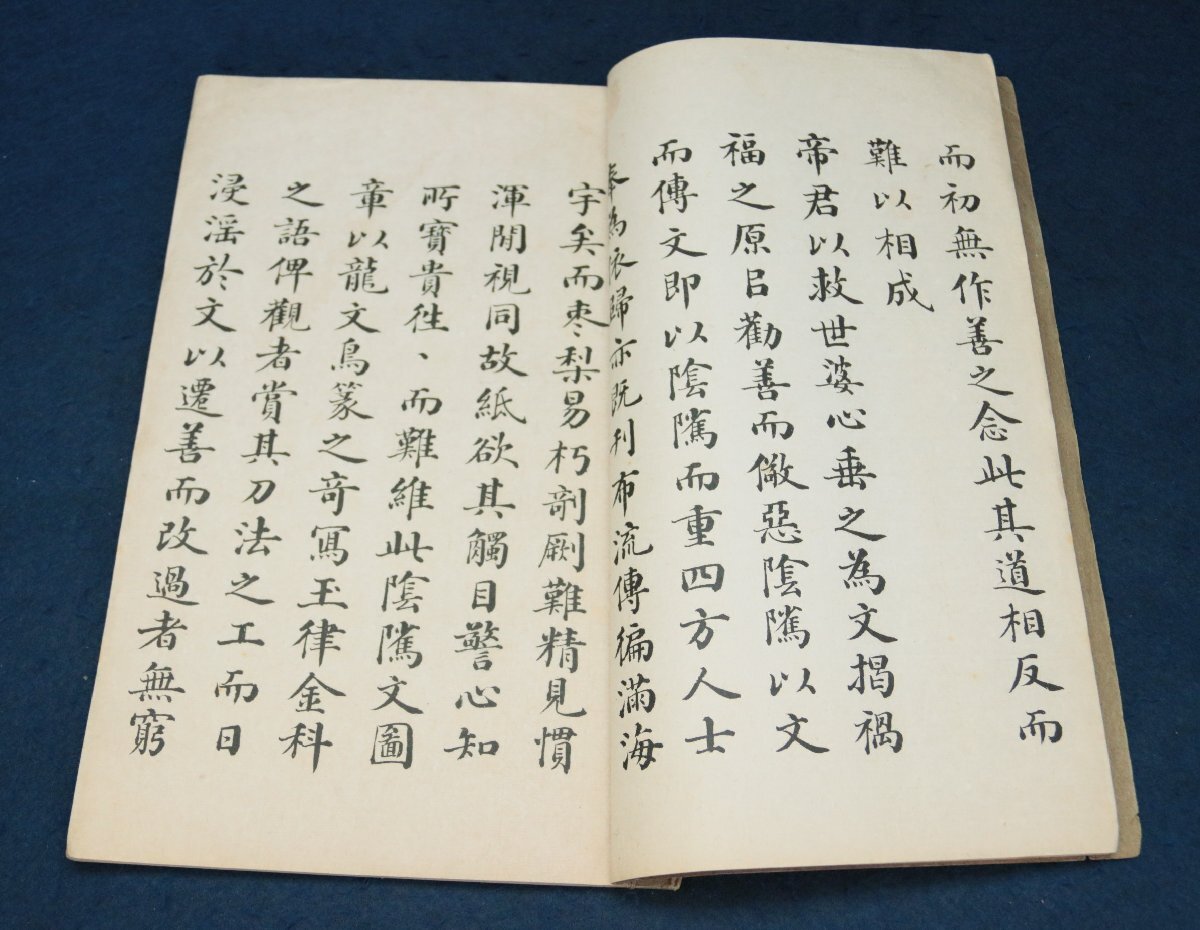 而初無作善之念此其道相反而
難以相成
帝君以救世婆心垂之為文揭禍
福之原㠯勸善而儆惡陰隲以文
而傳文即以陰隲而重四方人士
奉為依歸亦既刊布流傳徧滿海
宇矣而棗梨易朽剞劂難精見慣
渾閒視同故紙欲其觸目警心知
所寶貴徃、而難維此陰隲文圖
章以龍文鳥篆之奇寫玉律金科
之語俾觀者賞其刀法之工而日
浸滛於文以遷善而改過者無窮